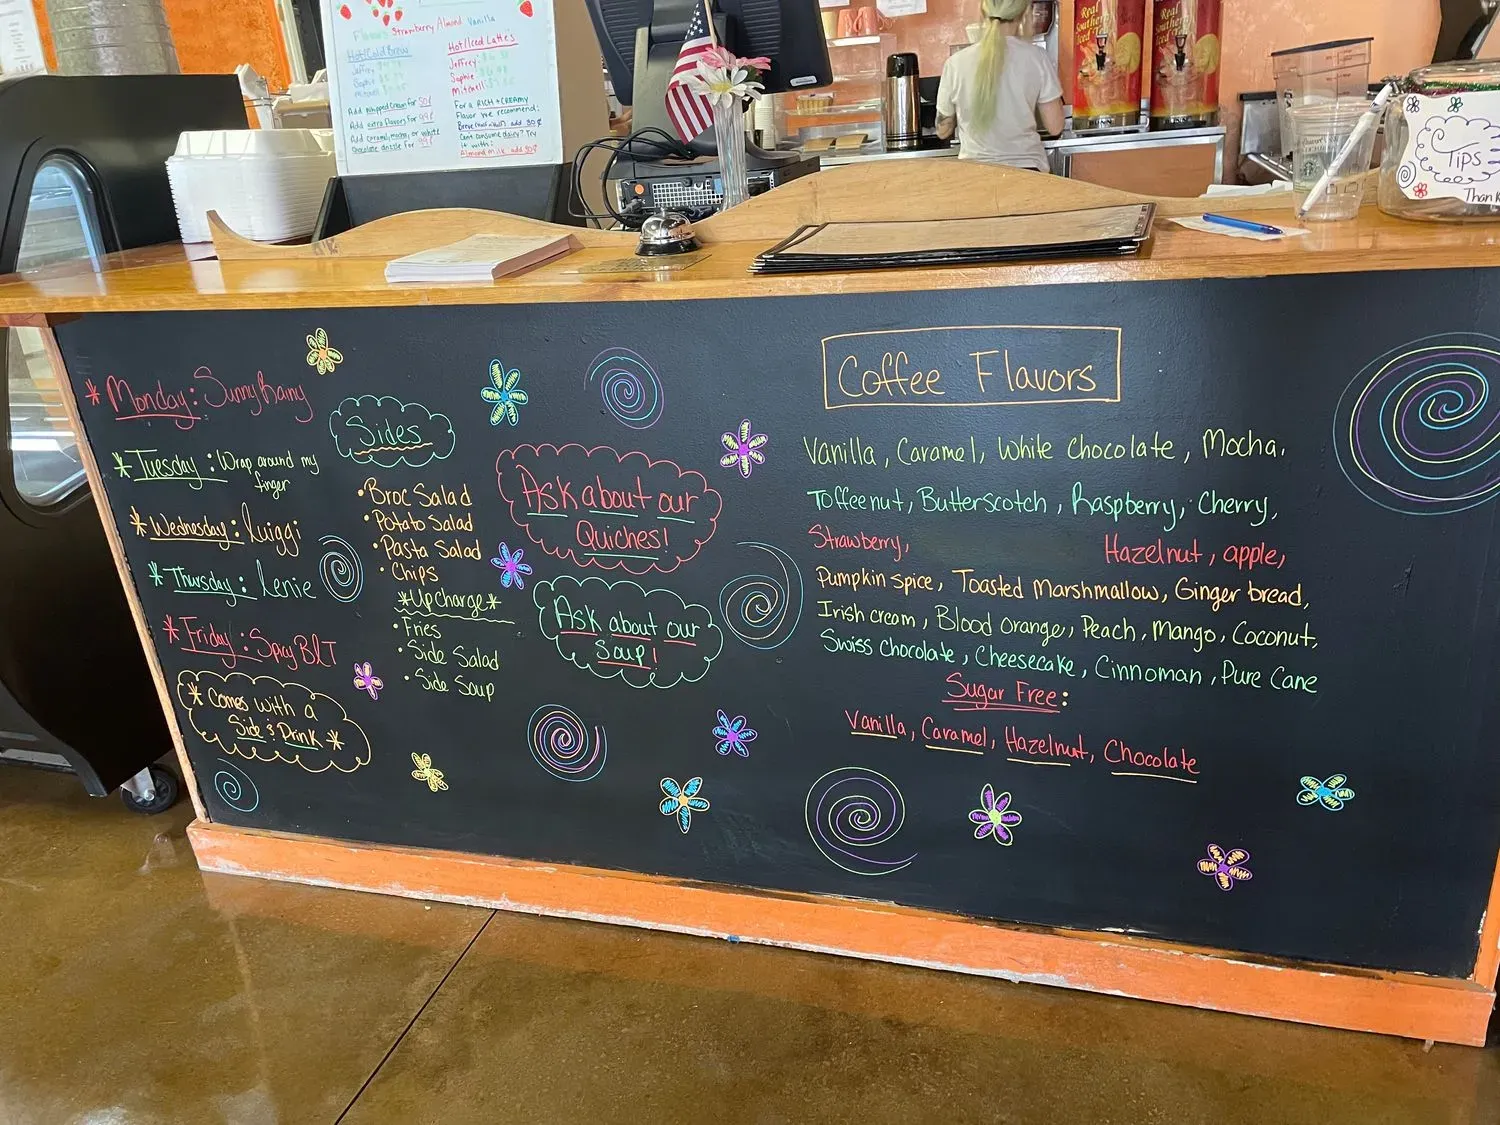 Flavors Strawberry Almond Vanilla
Hot/Cold Brew
Jeffrey
Sophie
Mitchell
Add whipped cream for 50¢
Add extra flavors for 99¢
Add caramel, mocha, or white
Chocolate drizzle for 99¢
Hot/Iced Latte's
Jeffrey
Sophie
Mitchell
For a RICH + CREAMY
Flavor we recommend:
Breve (half n half) add 30¢
Cant consume dairy? Try
it with:
Almond Milk add 90¢
Real
Southern
Iced
Real
Southern
Iced
Tips
Thank
*Monday: Sunny Rainy
*Tuesday: Wrap around my
finger
*Wednesday: Luiggi
*Thursday: Lenie
*Friday: Spicy BLT
*Comes with a
Side & Drink*
Sides
• Broc Salad
• Potato Salad
• Pasta Salad
• Chips
*Upcharge*
• Fries
• Side Salad
• Side Soup
Ask about our
Quiches!
Ask about our
Soup!
Coffee Flavors
Vanilla, Caramel, White Chocolate, Mocha,
Toffeenut, Butterscotch, Raspberry, Cherry,
Strawberry, Hazelnut, apple,
Pumpkin spice, Toasted Marshmallow, Ginger bread,
Irish cream, Blood orange, Peach, Mango, Coconut,
Swiss Chocolate, Cheesecake, Cinnoman, Pure Cane
Sugar Free:
Vanilla, Caramel, Hazelnut, Chocolate